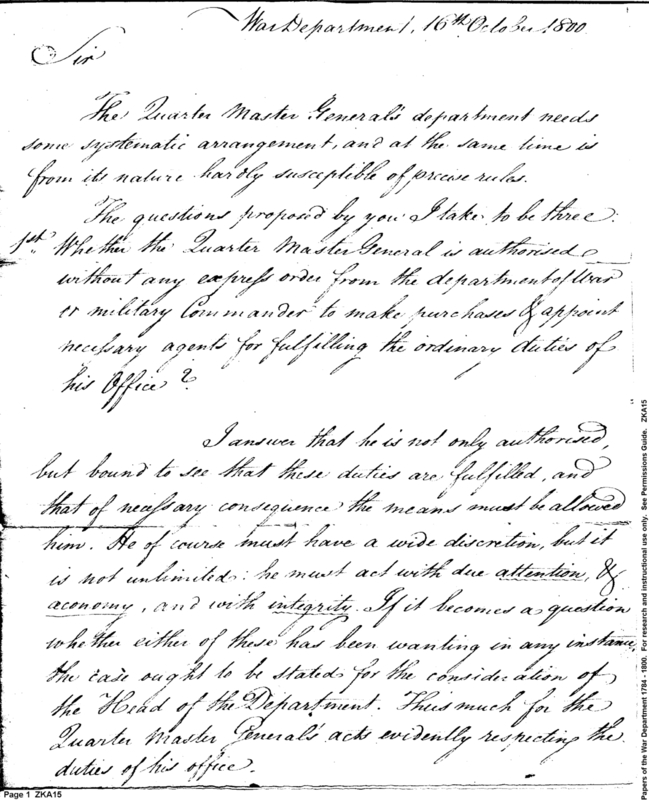 War Department, 16th October 1800
Sir
The Quarter Master General's department needs
some systematic arrangement, and at the same time is
from its nature hardly susceptible of precise rules.
The questions proposed by you I take to be three:
1st. Whether the Quarter Master General is authorised
without any express order from the department of War
or military Commander to make purchases & appoint
necessary agents for fulfilling the ordinary duties of
his Office?
I answer that he is not only authorised,
but bound to see that these duties are fulfilled, and
that of necessary consequence the means must be allowed
him. He of course must have a wide discretion, but it
is not unlimited: he must act with due attention, &
œconomy, and with integrity. If it becomes a question
whether either of these has been wanting in any instance,
the case ought to be stated for the consideration of
the Head of the Department. Thus much for the
Quarter Master General's acts evidently respecting the
duties of his office.
Page 1 ZKA15
Papers of the War Department 1784 - 1800. For research and instructional use only. See Permissions Guide. ZKA15